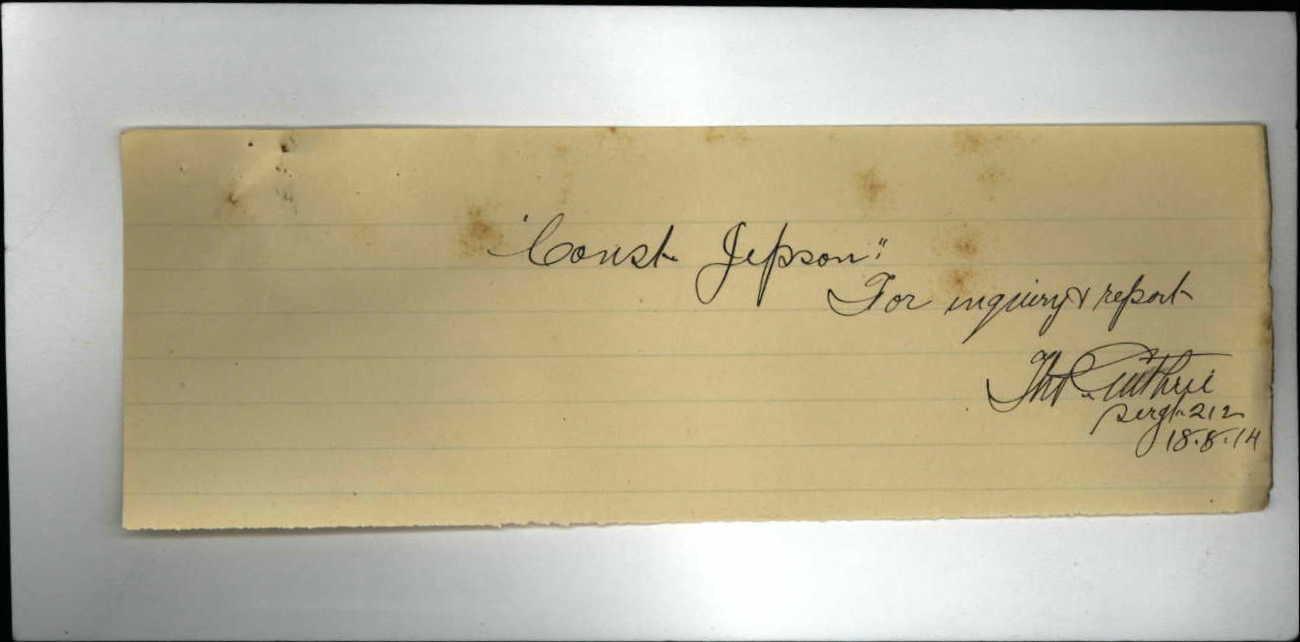 "Const Jepson"
For inquiry & report
Thos Guthrie
Sergt 212
18.8.14